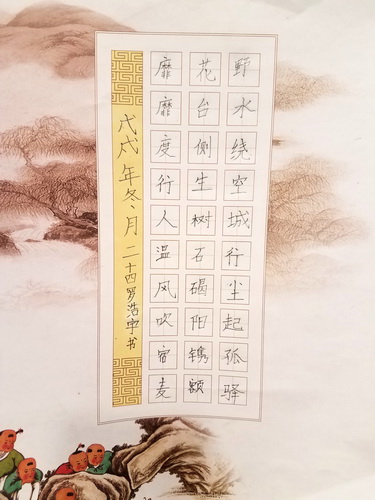 野水绕空城行尘起孤驿
花台侧生树石碣阳镌额
靡靡度行人温风吹宿麦
戊戌年冬月二十四罗浩宇书